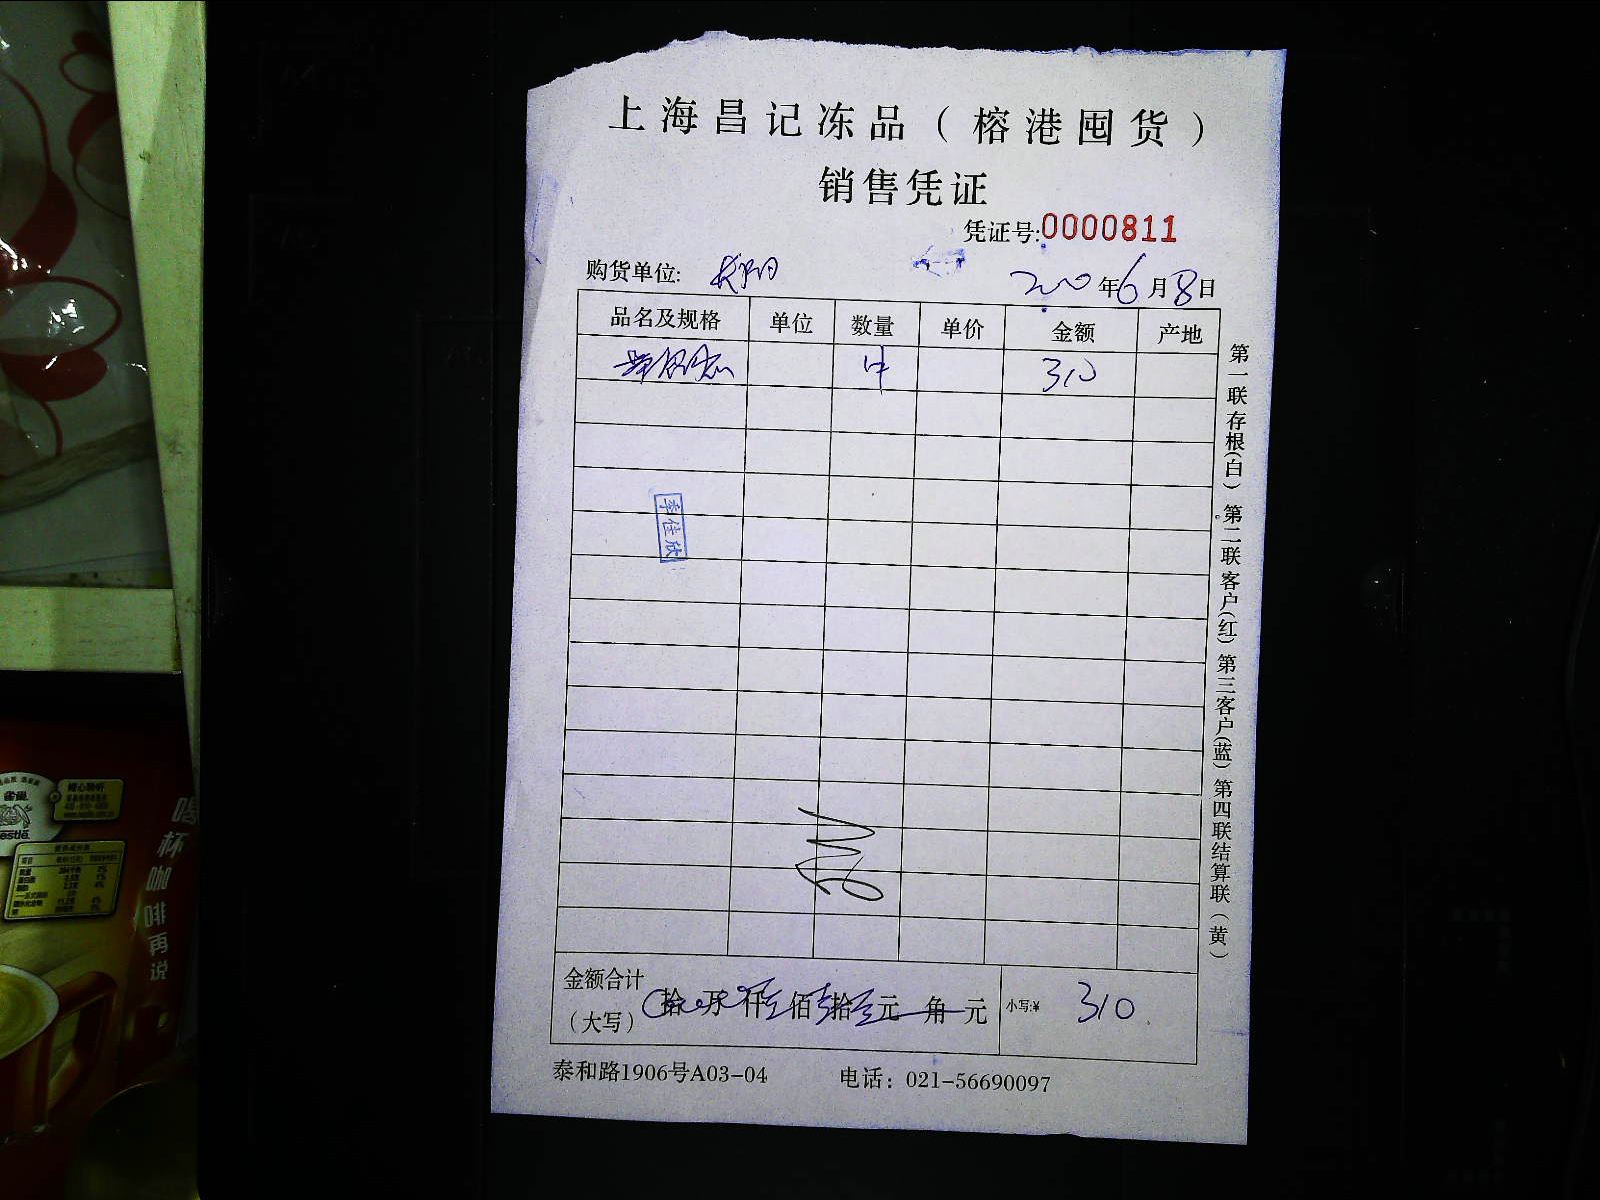 上海昌记冻品（榕港囤货）
销售凭证
凭证号:0000811
购货单位:
年6月8日
品名及规格 单位 数量 单价 金额 产地
310
李佳欣
金额合计
（大写） 拾 万 仟 佰 拾 元 角 元 小写:¥ 310
泰和路1906号A03-04 电话：021-56690097
第一联存根(白) 第二联客户(红) 第三客户(蓝) 第四联结算联(黄)
雀巢
喝杯咖啡再说